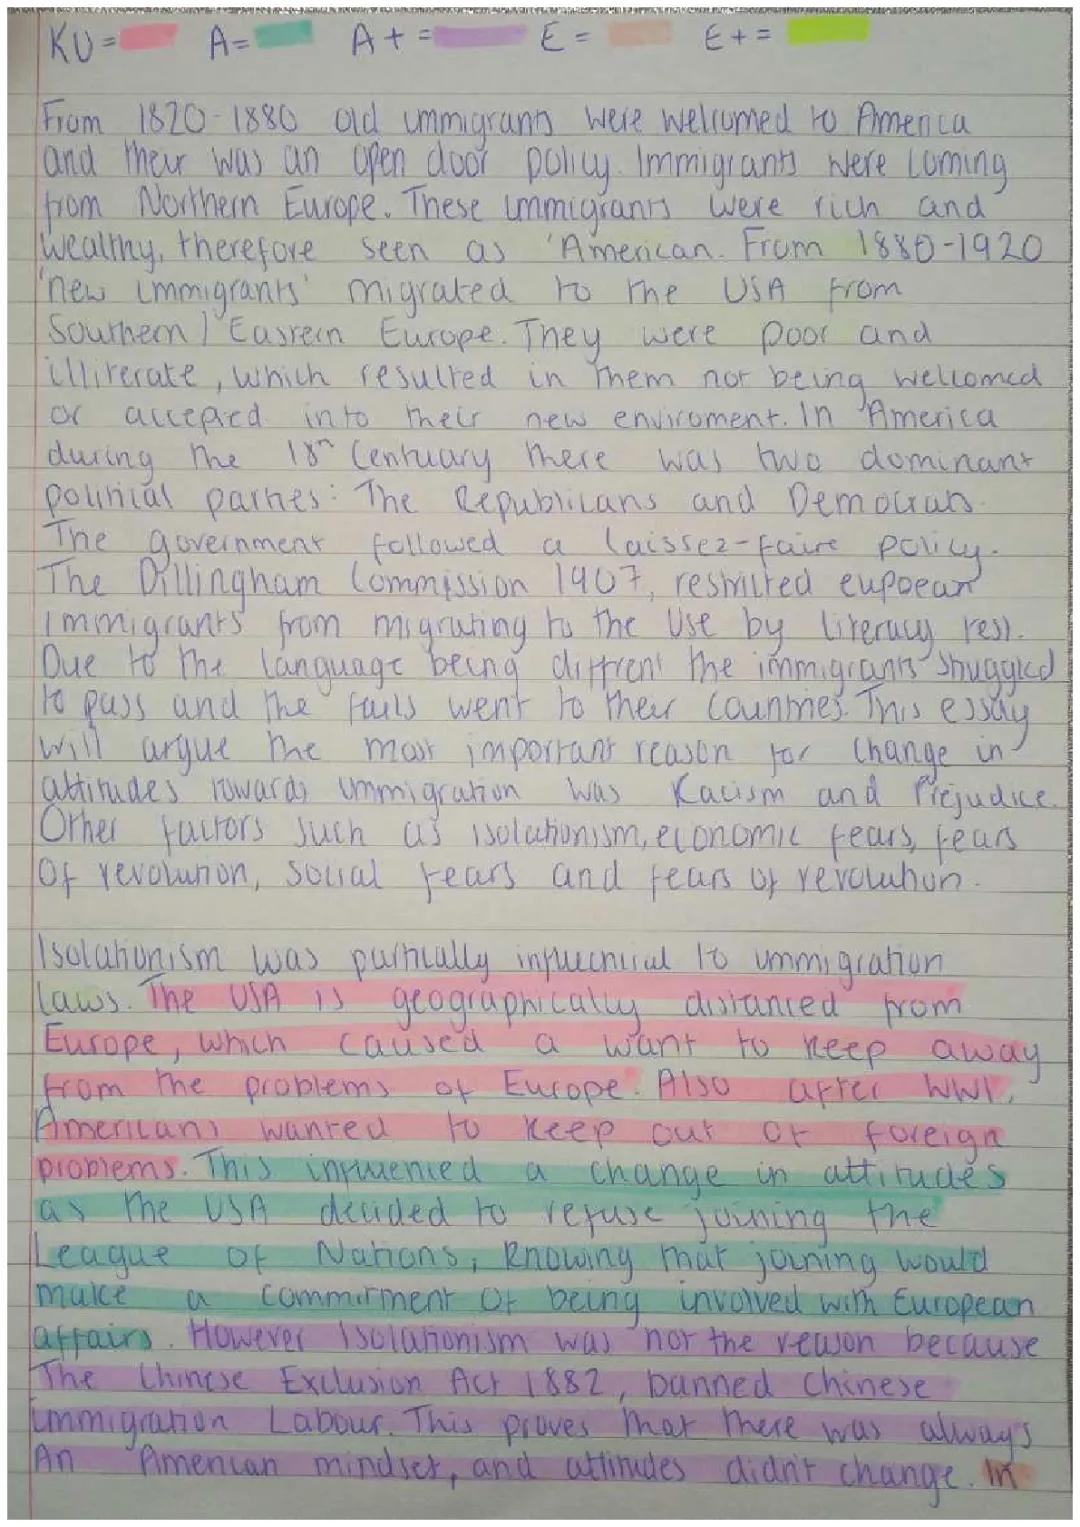 KU= A= A+ = E = E+ =
From 1820-1880 old immigrants were welcomed to America
and their was an open door policy. Immigrants were coming
from Northern Europe. These immigrants were rich and
wealthy, therefore seen as 'American. From 1880-1920
'new immigrants' migrated to the USA from
Southern / Eastern Europe. They were poor and
illiterate, which resulted in them not being wellomed
or accepted into their new enviroment. In America
during the 18th Centuary there was two dominant
political parties: The Republicans and Democrats.
The government followed a laissez-faire policy.
The Dillingham Commission 1907, restricted eupoean
immigrants from migrating to the Use by literacy test.
Due to the language being diffrent the immigrants struggled
to pass and the fails went to their countries. This essay
will argue the most important reason for change in
attitudes towards immigration was Racism and Prejudice.
Other factors such as isolationism, economic fears, fears
of revolution, social fears and fears of revolution.
Isolationism was partically influencial to immigration
laws. The USA is geographically distanced from
Europe, which caused a want to keep away
from the problems of Europe. Also after WW1,
Americans wanted to keep out of foreign
problems. This influenced a change in attitudes
as the USA decided to refuse joining the
League of Nations, knowing that joining would
make a commitment of being involved with European
affairs. However Isolationism was not the reason because
The Chinese Exclusion Act 1882, banned Chinese
immigration Labour. This proves that there was always
An American mindset, and attitudes didn't change. In